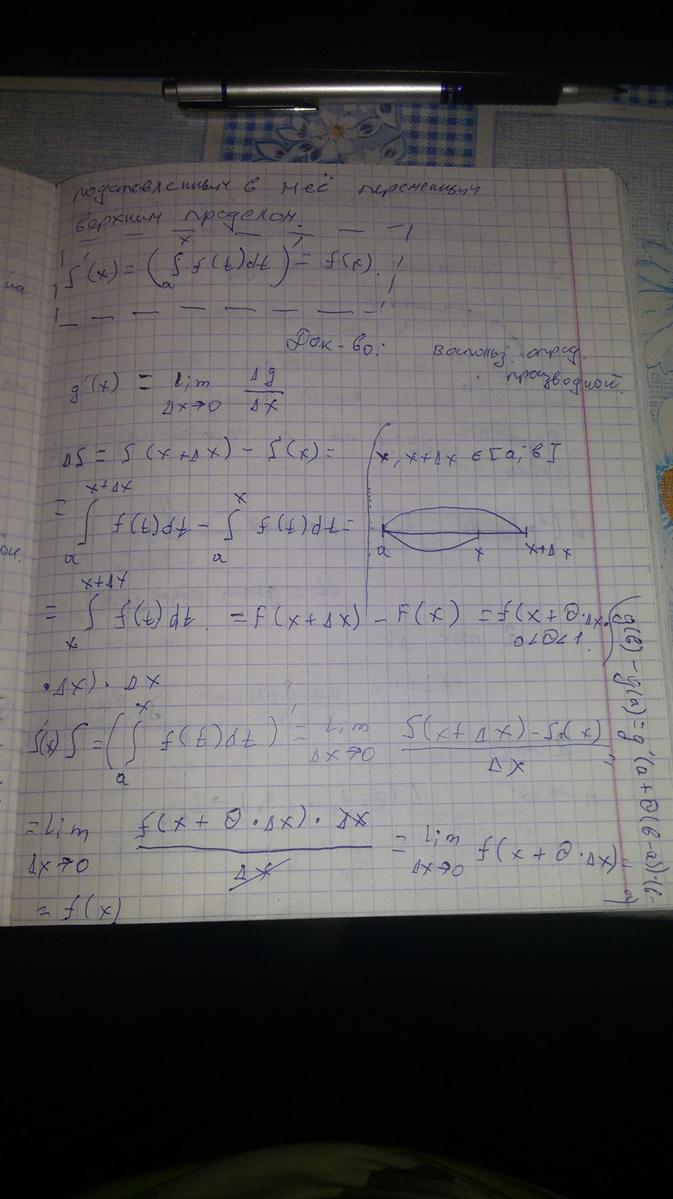 подставленным в неё переменным
верхним пределом.
S'(x) = (∫ₐˣ f(t)dt)' = f(x).
Док-во: Воспольз. опред. производной.
g'(x) = lim Δx→0 Δg/Δx
ΔS = S(x+Δx) - S(x) =
x, x+Δx ∈ [a; в]
= ∫ₐˣ⁺Δˣ f(t)dt - ∫ₐˣ f(t)dt =
a x x+Δx
= ∫ₓˣ⁺Δˣ f(t)dt. = F(x+Δx) - F(x) = f(x + Θ·Δx·
0<Θ<1.
·Δx)·Δx
S'(x) S = (∫ₐˣ f(t)dt)' = lim Δx→0 (S(x+Δx)-S(x))/Δx =
= lim Δx→0 (f(x + Θ·Δx)·Δx)/Δx = lim Δx→0 f(x + Θ·Δx) =
= f(x)
g(в) - g(a) = g'(a + Θ(в-a))·(в-a)